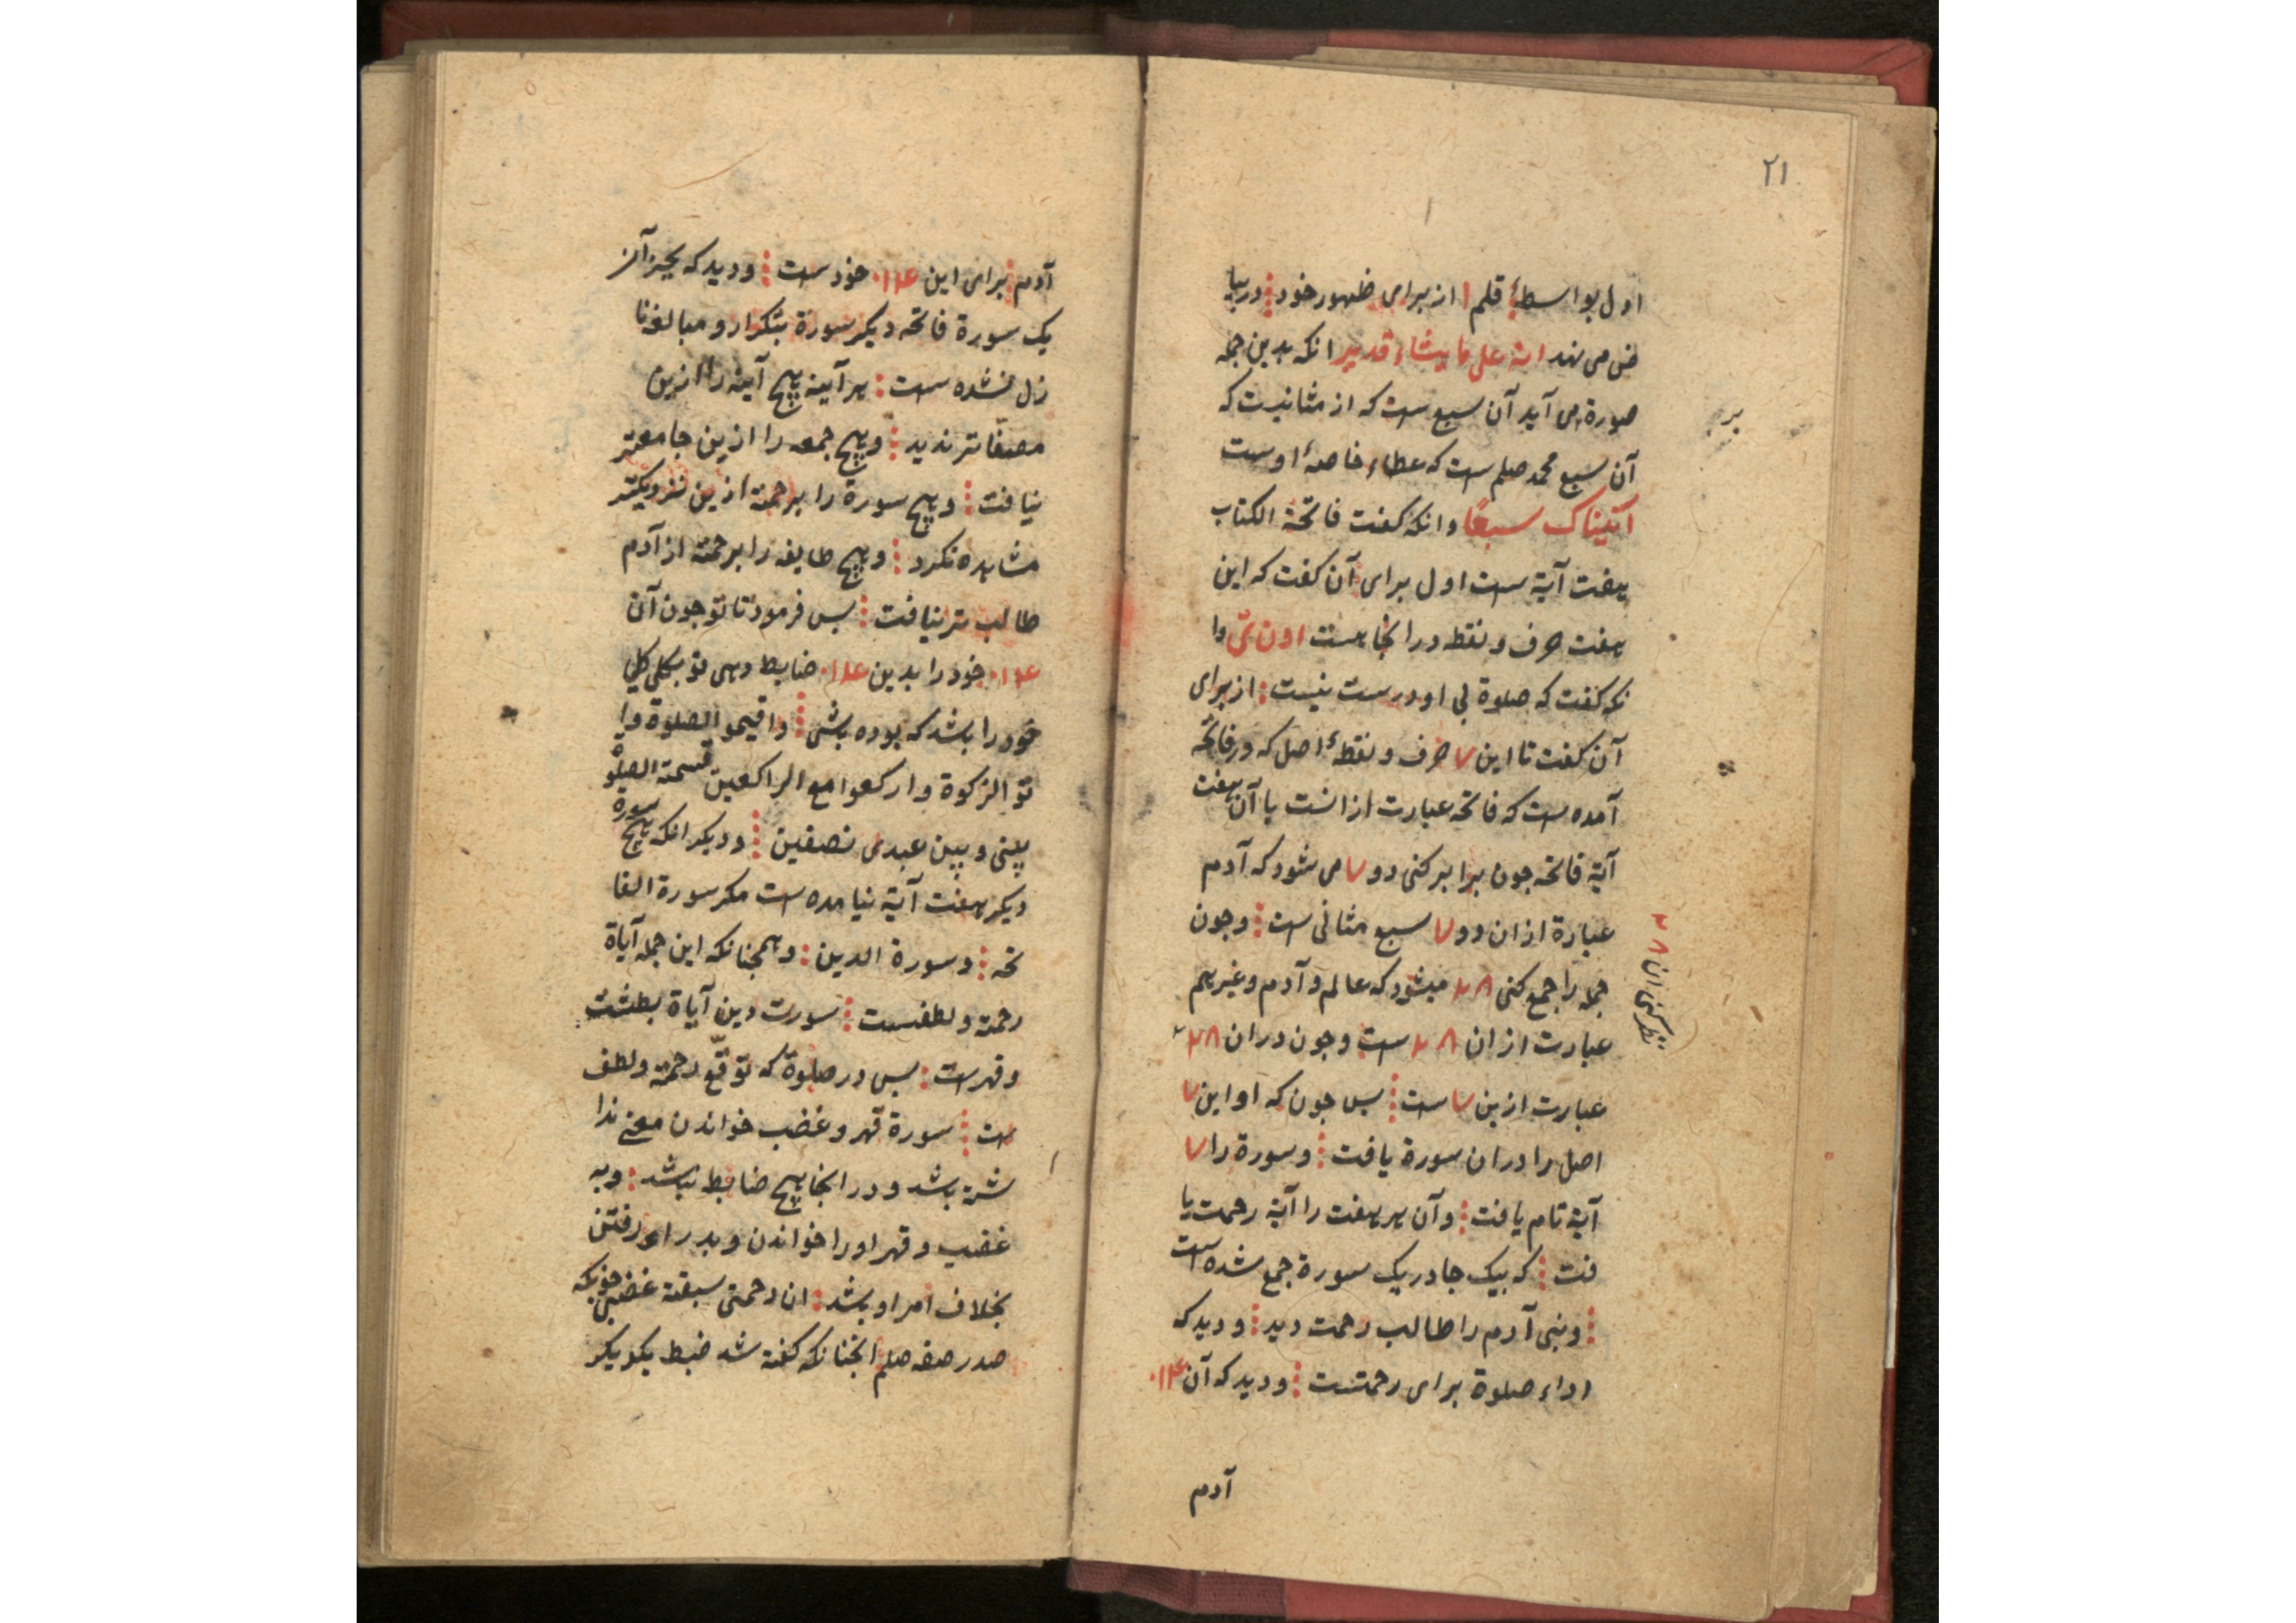 ۲۱
اول بواسطهٔ قلم ا از برای ظهور خود در بیا
ض می نهد انه علی ما یشاء قدیر انکه بدین جمله
صورة می آید آن سبع ست که از مثانیست که
بر
آن سبع محمد صلم ست که عطاء خاصهٔ اوست
آتیناک سبعًا وانکه کفت فاتحة الکتاب
هفت آیة ست اول برای آن کفت که این
هفت حرف و نقطه در انجا هست وا
نکه کفت که صلوة بی او درست نیست از برای
آن کفت تا این ۷ حرف و نقطهٔ اصل که در فاتحه
آمده ست که فاتحه عبارت ازانست با آن هفت
آیة فاتحه جون برابر کنی دو ۷ می شود که آدم
عبارة از ان دو ۷ سبع مثانی ست و جون
جمله را جمع کنی ۲۸ میشود که عالم و آدم و غیر هم
عبارت از ان ۲۸ ست و جون در ان ۲۸
عبارت ازین ۷ ست بس جون که او این ۷
اصل را در ان سورة یافت و سورة را ۷
آیة تام یافت و آن هر هفت را آیة رحمت یا
فت که بیک جا در یک سورة جمع شده است
و بنی آدم را طالب رحمت دید و دید که
اداء صلوة برای رحمتست و دید که آن ۰۱۱۴
آدم
آدم برای این ۰۱۱۴ خودست و دید که بجز آن
یک سورة فاتحه دیکر سورة بتکرار و مبالغه نا
زل نشده ست هر آینه هیچ آینه را ازین
مصفّاتر ندید و هیچ جمعه را ازین جامعتر
نیافت و هیچ سورة را برحمة ازین نزدیکتر
مشاهده نکرد و هیچ طایفه را برحمة از آدم
طالب تر نیافت بس فرمود تا تو جون آن
۰۱۱۴ خود را بدین ۰۱۱۴ ضابط دهی تو بکلی کلی
خود را باشد که بوده باشی و اقیموا الصلوة وا
توا الزکوة و ارکعوا مع الراکعین قسمة الصلو
بینی و بین عبدی نصفین و دیکر انکه هیچ سورة
دیکر هفت آیة نیامده ست مکر سورة الفا
تحه و سورة الدین و همجنانکه این جمله آیاة
رحمة و لطفست سورت دین آیاة بطشت
و قهرست بس در صلوة که توقّع رحمة و لطف
ست سورة قهر و غضب خواندن معنی ندا
شته باشد و در انجا هیچ ضابط نباشد و به
غضب و قهر او را خواندن و بدر او رفتن
بخلاف امر او باشد ان رحمتی سبقت غضبی جونکه
صدر صفه صلم انجنانکه کفته شد ضبط یکویکر